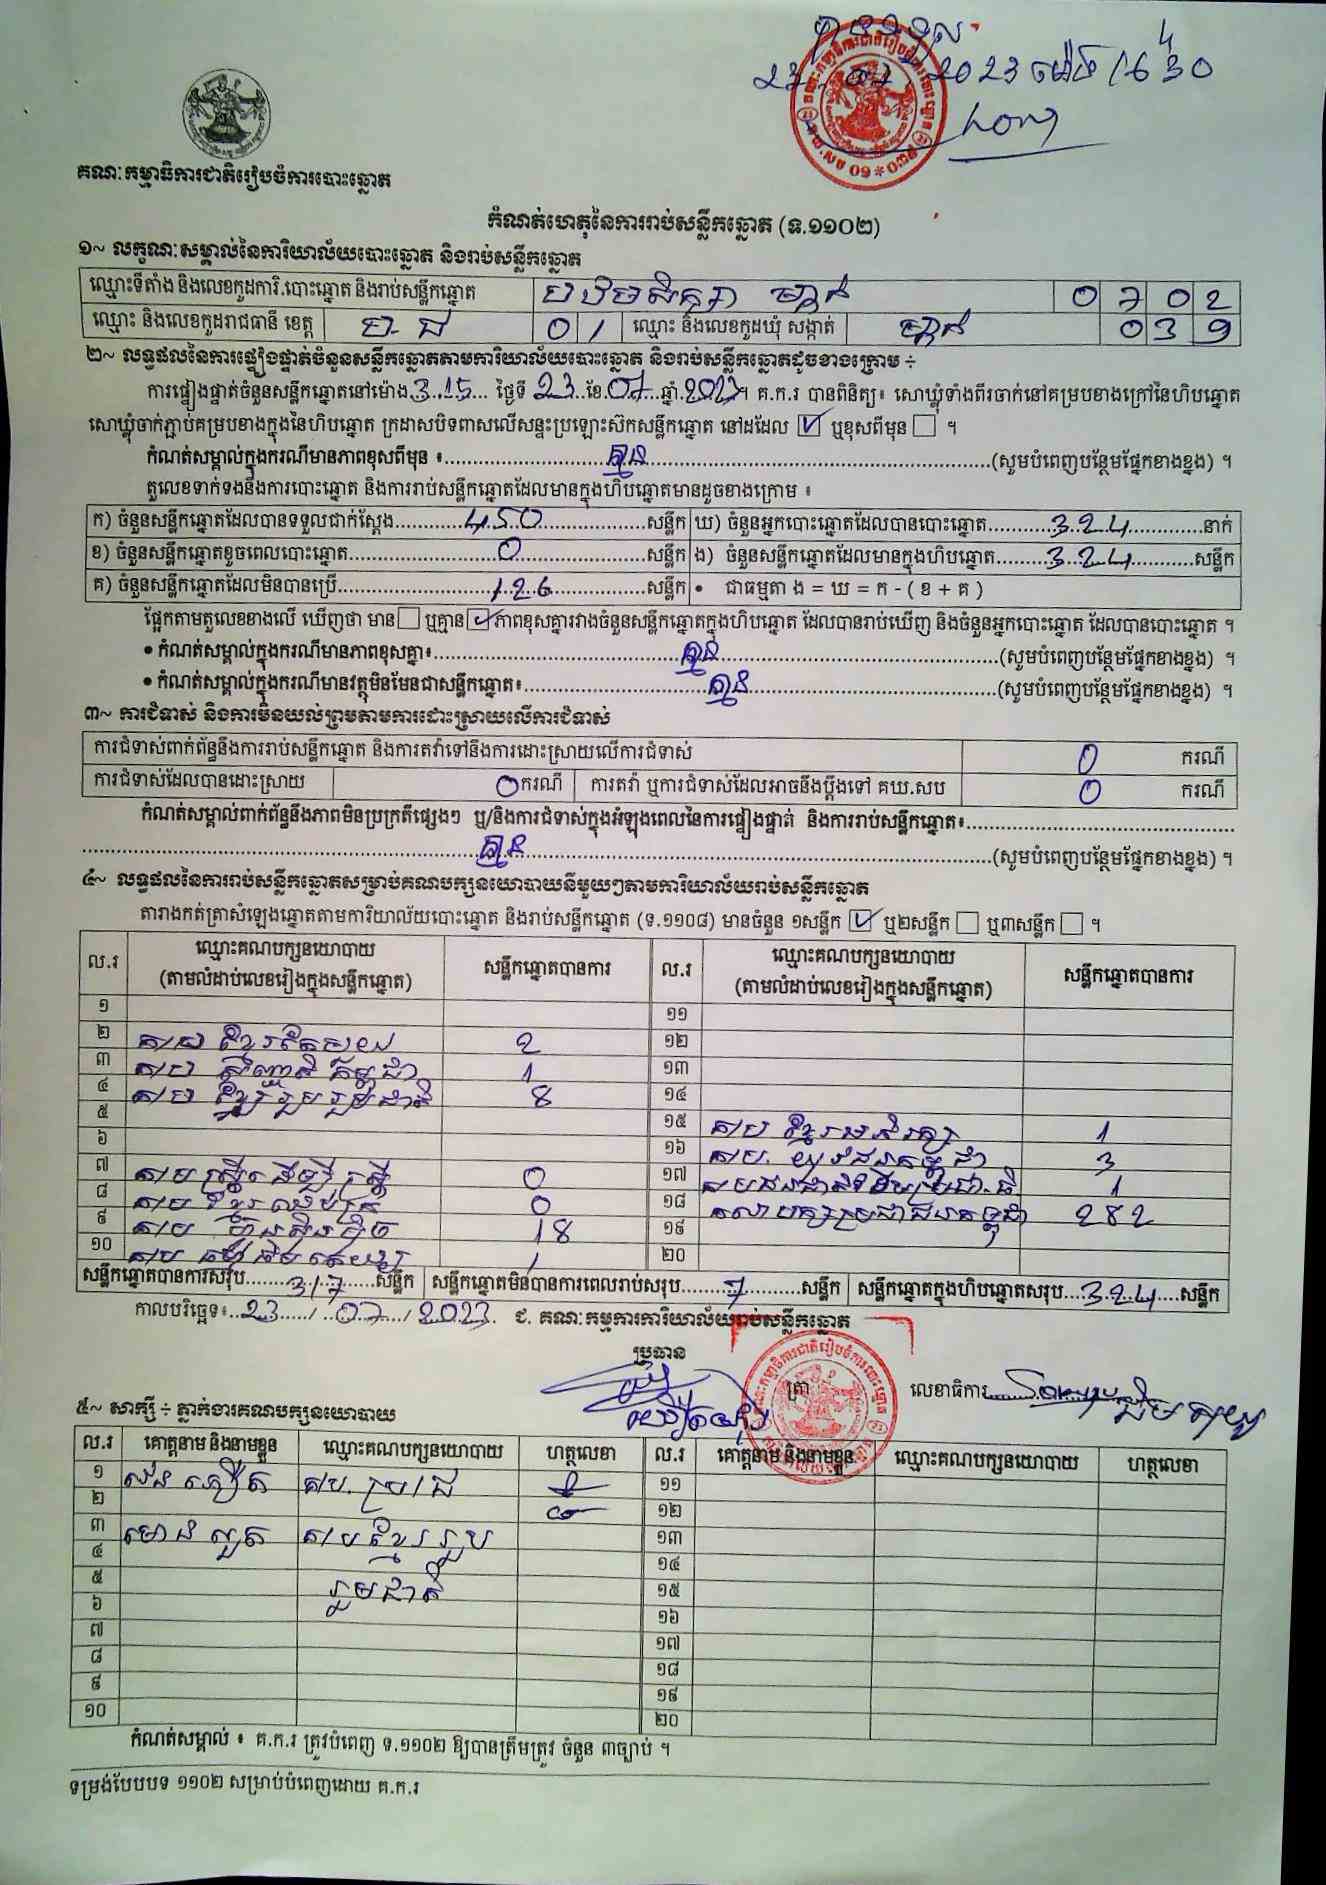 2023 ម៉ោង
គណៈកម្មាធិការជាតិរៀបចំការបោះឆ្នោត
កំណត់ហេតុនៃការរាប់សន្លឹកឆ្នោត (ទ.១១០២)
១~ លក្ខណៈសម្គាល់នៃការិយាល័យបោះឆ្នោត និងរាប់សន្លឹកឆ្នោត
ឈ្មោះទីតាំង និងលេខកូដការិ.បោះឆ្នោត និងរាប់សន្លឹកឆ្នោត បឋមសិក្សា 0 7 0 2
ឈ្មោះ និងលេខកូដរាជធានី ខេត្ត ប.ជ 0 1 ឈ្មោះ និងលេខកូដឃុំ សង្កាត់ 0 3 9
២~ លទ្ធផលនៃការផ្ទៀងផ្ទាត់ចំនួនសន្លឹកឆ្នោតតាមការិយាល័យបោះឆ្នោត និងរាប់សន្លឹកឆ្នោតដូចខាងក្រោម ÷
ការផ្ទៀងផ្ទាត់ចំនួនសន្លឹកឆ្នោតនៅម៉ោង 3.15 ថ្ងៃទី 23 ខែ 07 ឆ្នាំ 2023។ គ.ក.រ បានពិនិត្យ៖ សោឃ្លុំទាំងពីរចាក់នៅគម្របខាងក្រៅនៃហិបឆ្នោត
សោឃ្លុំចាក់ភ្ជាប់គម្របខាងក្នុងនៃហិបឆ្នោត ក្រដាសបិទពាសលើសន្ទះប្រឡោះស៊កសន្លឹកឆ្នោត នៅដដែល ☑ ឬខុសពីមុន ☐ ។
កំណត់សម្គាល់ក្នុងករណីមានភាពខុសពីមុន ៖ គ្មាន (សូមបំពេញបន្ថែមផ្នែកខាងខ្នង) ។
តួលេខទាក់ទងនឹងការបោះឆ្នោត និងការរាប់សន្លឹកឆ្នោតដែលមានក្នុងហិបឆ្នោតមានដូចខាងក្រោម ៖
ក) ចំនួនសន្លឹកឆ្នោតដែលបានទទួលជាក់ស្តែង 450 សន្លឹក ឃ) ចំនួនអ្នកបោះឆ្នោតដែលបានបោះឆ្នោត 324 នាក់
ខ) ចំនួនសន្លឹកឆ្នោតខូចពេលបោះឆ្នោត 0 សន្លឹក ង) ចំនួនសន្លឹកឆ្នោតដែលមានក្នុងហិបឆ្នោត 324 សន្លឹក
គ) ចំនួនសន្លឹកឆ្នោតដែលមិនបានប្រើ 126 សន្លឹក • ជាធម្មតា ង = ឃ = ក - ( ខ + គ )
ផ្អែកតាមតួលេខខាងលើ ឃើញថា មាន ☐ ឬគ្មាន ☑ ភាពខុសគ្នារវាងចំនួនសន្លឹកឆ្នោតក្នុងហិបឆ្នោត ដែលបានរាប់ឃើញ និងចំនួនអ្នកបោះឆ្នោត ដែលបានបោះឆ្នោត ។
• កំណត់សម្គាល់ក្នុងករណីមានភាពខុសគ្នា៖ គ្មាន (សូមបំពេញបន្ថែមផ្នែកខាងខ្នង) ។
• កំណត់សម្គាល់ក្នុងករណីមានវត្ថុមិនមែនជាសន្លឹកឆ្នោត៖ គ្មាន (សូមបំពេញបន្ថែមផ្នែកខាងខ្នង) ។
៣~ ការជំទាស់ និងការមិនយល់ព្រមតាមការដោះស្រាយលើការជំទាស់
ការជំទាស់ពាក់ព័ន្ធនឹងការរាប់សន្លឹកឆ្នោត និងការតវ៉ាទៅនឹងការដោះស្រាយលើការជំទាស់ 0 ករណី
ការជំទាស់ដែលបានដោះស្រាយ 0 ករណី ការតវ៉ា ឬការជំទាស់ដែលអាចនឹងប្តឹងទៅ គឃ.សប 0 ករណី
កំណត់សម្គាល់ពាក់ព័ន្ធនឹងភាពមិនប្រក្រតីផ្សេងៗ ឬ/និងការជំទាស់ក្នុងអំឡុងពេលនៃការផ្ទៀងផ្ទាត់ និងការរាប់សន្លឹកឆ្នោត៖
គ្មាន (សូមបំពេញបន្ថែមផ្នែកខាងខ្នង) ។
៤~ លទ្ធផលនៃការរាប់សន្លឹកឆ្នោតសម្រាប់គណបក្សនយោបាយនីមួយៗតាមការិយាល័យរាប់សន្លឹកឆ្នោត
តារាងកត់ត្រាសំឡេងឆ្នោតតាមការិយាល័យបោះឆ្នោត និងរាប់សន្លឹកឆ្នោត (ទ.១១០៨) មានចំនួន ១សន្លឹក ☑ ឬ២សន្លឹក ☐ ឬ៣សន្លឹក ☐ ។
ល.រ ឈ្មោះគណបក្សនយោបាយ (តាមលំដាប់លេខរៀងក្នុងសន្លឹកឆ្នោត) សន្លឹកឆ្នោតបានការ ល.រ ឈ្មោះគណបក្សនយោបាយ (តាមលំដាប់លេខរៀងក្នុងសន្លឹកឆ្នោត) សន្លឹកឆ្នោតបានការ
១ ១១
២ 2 ១២
៣ 1 ១៣
៤ គ.ប ខ្មែររួបរួមជាតិ 8 ១៤
៥ ១៥ 1
៦ ១៦ 3
៧ គប ស្ត្រីដើម្បីស្ត្រី 0 ១៧ 1
៨ 0 ១៨ គណបក្សប្រជាជនកម្ពុជា 282
៩ គប ហ្វ៊ុនស៊ិនប៉ិច 18 ១៩
១០ 1 ២០
សន្លឹកឆ្នោតបានការសរុប 317 សន្លឹក សន្លឹកឆ្នោតមិនបានការពេលរាប់សរុប 7 សន្លឹក សន្លឹកឆ្នោតក្នុងហិបឆ្នោតសរុប 324 សន្លឹក
កាលបរិច្ឆេទ៖ 23 / 07 / 2023. ជ. គណៈកម្មការការិយាល័យរាប់សន្លឹកឆ្នោត
ប្រធាន
ត្រា លេខាធិការ
៥~ សាក្សី ÷ ភ្នាក់ងារគណបក្សនយោបាយ
ល.រ គោត្តនាម និងនាមខ្លួន ឈ្មោះគណបក្សនយោបាយ ហត្ថលេខា ល.រ គោត្តនាម និងនាមខ្លួន ឈ្មោះគណបក្សនយោបាយ ហត្ថលេខា
១ ១១
២ ១២
៣ គប ខ្មែររួប ១៣
៤ ១៤
៥ រួមជាតិ ១៥
៦ ១៦
៧ ១៧
៨ ១៨
៩ ១៩
១០ ២០
កំណត់សម្គាល់ ៖ គ.ក.រ ត្រូវបំពេញ ទ.១១០២ ឱ្យបានត្រឹមត្រូវ ចំនួន ៣ច្បាប់ ។
ទម្រង់បែបបទ ១១០២ សម្រាប់បំពេញដោយ គ.ក.រ